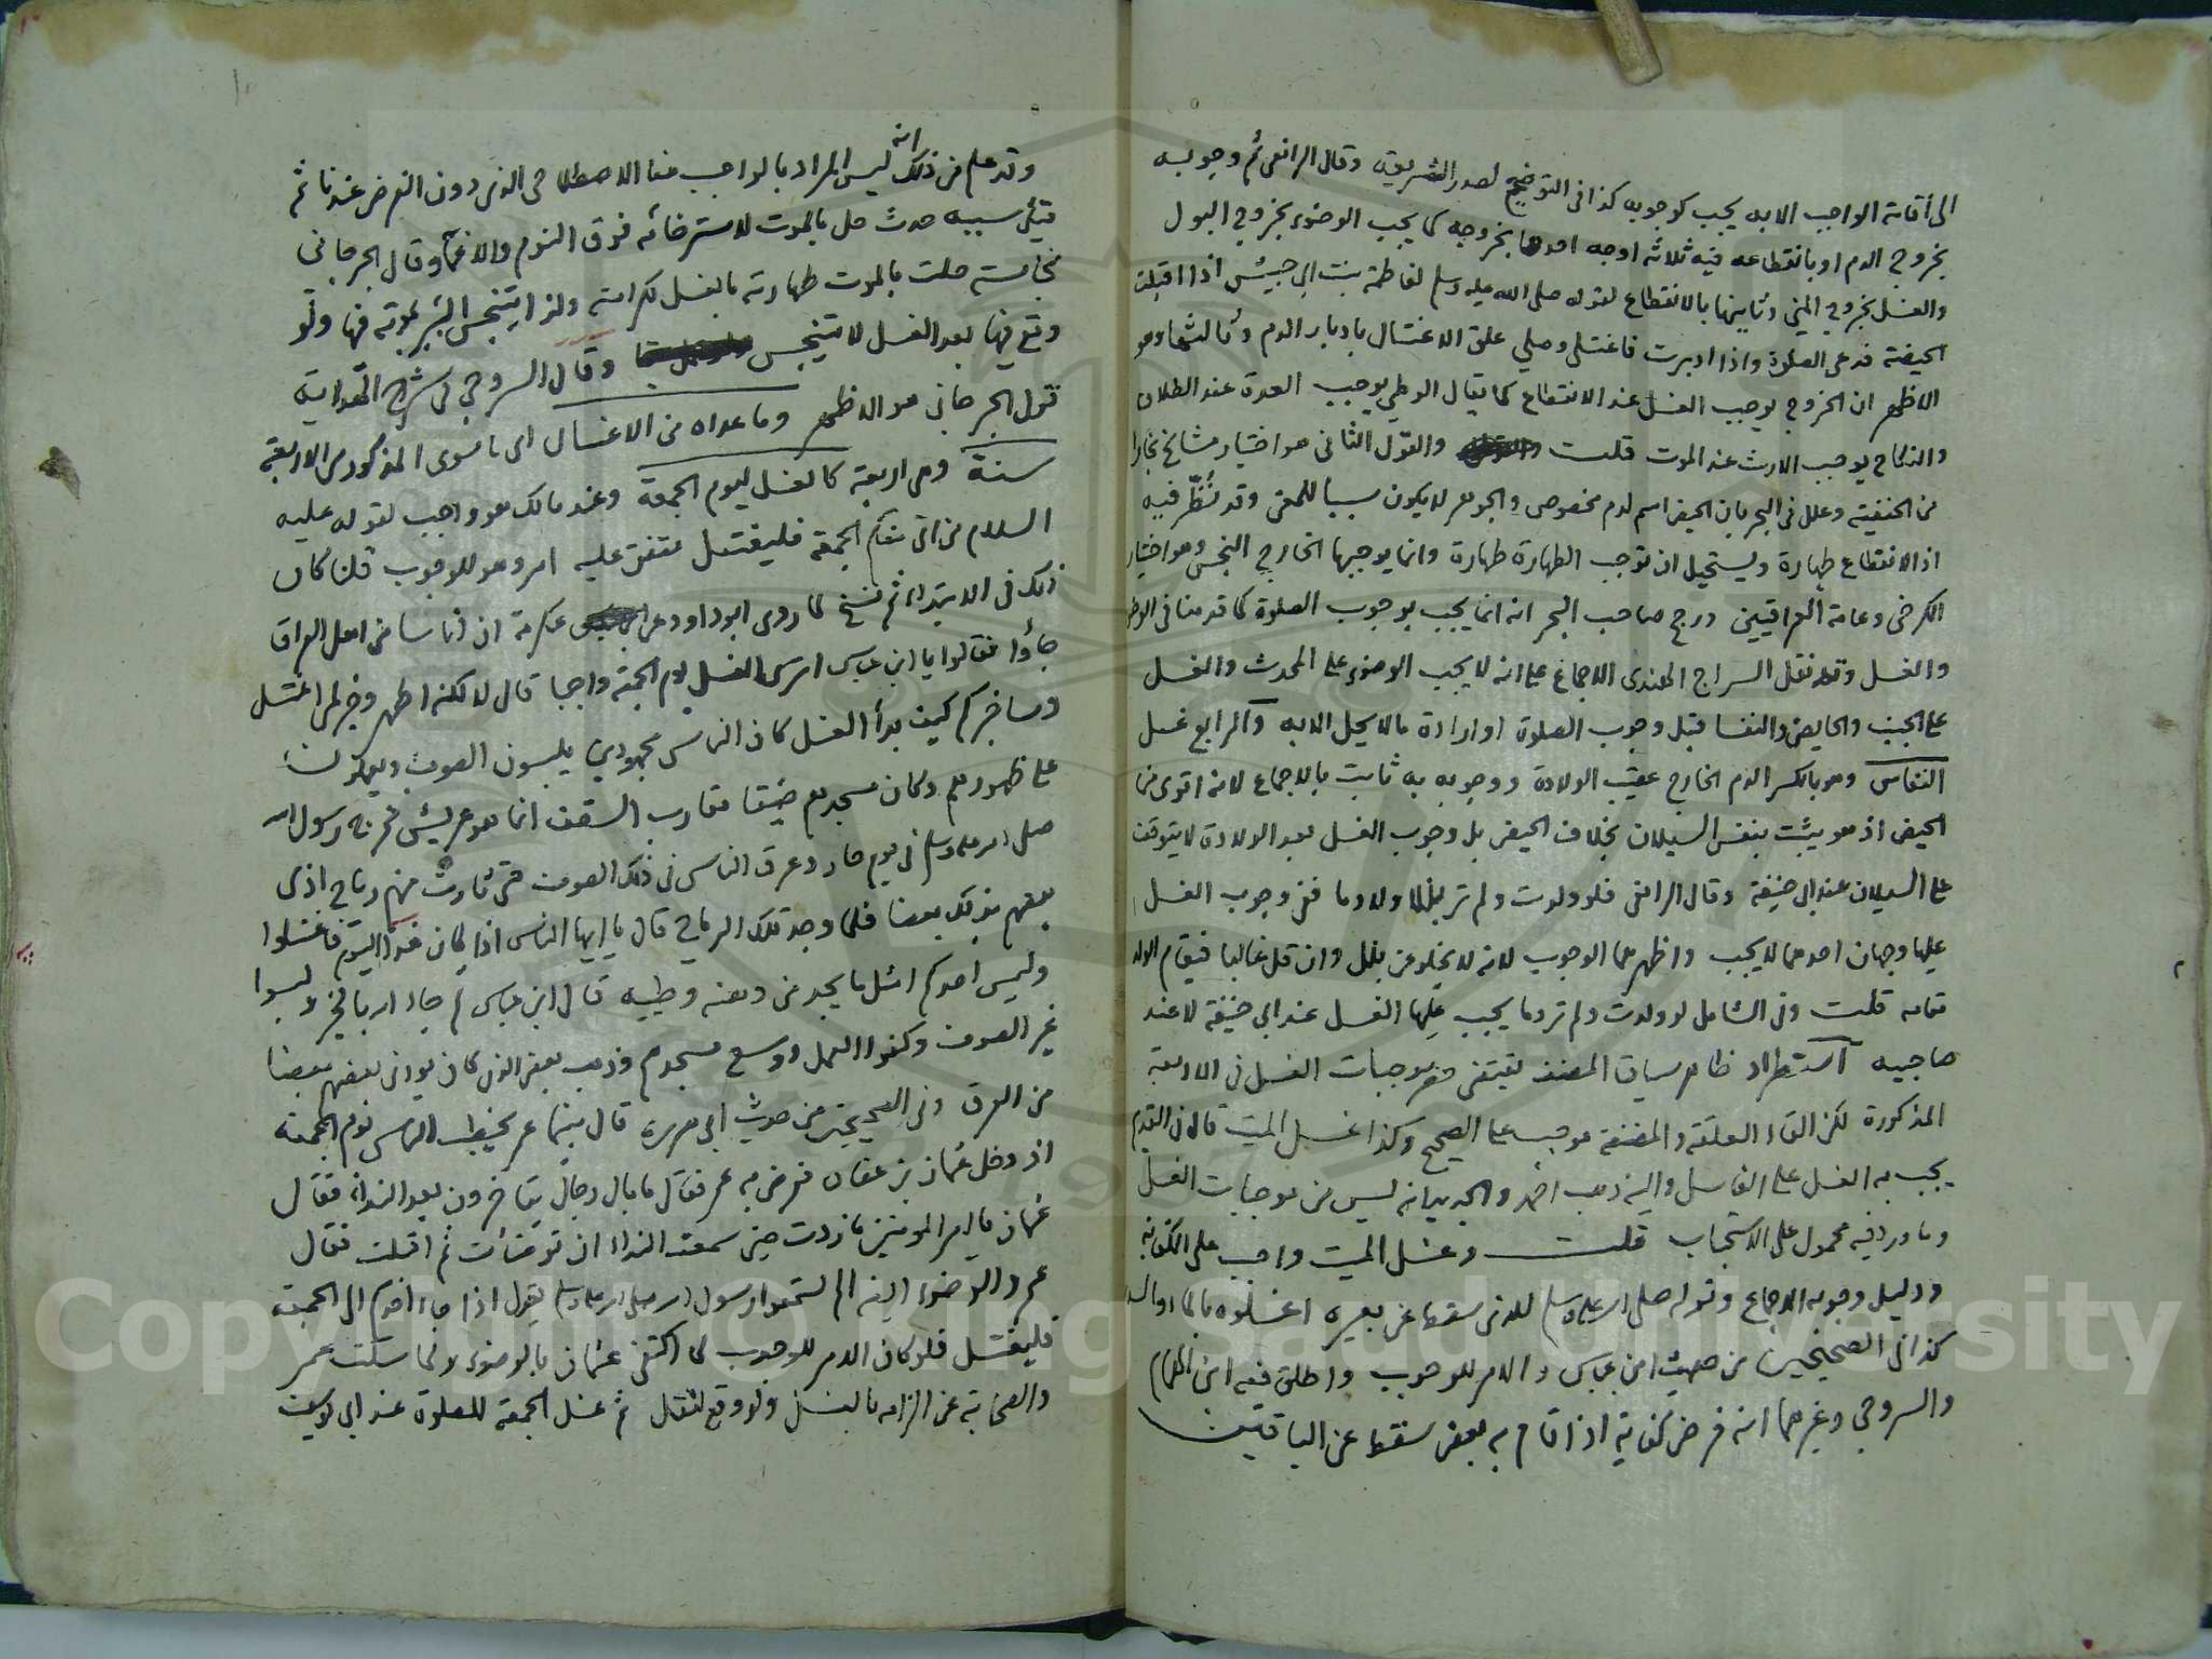 الى اقامة الواجب الا به يجب كوجوبه كذا في التوضيح لصدر الشريعة وقال الرافعي ثم وجوبه
بخروج الدم او بانقطاعه فيه ثلاثة اوجه احدها بخروجه كما يجب الوضوء بخروج البول
والغسل بخروج المني وثانيها بالانقطاع لقوله صلى الله عليه وسلم لفاطمة بنت ابي حبيش اذا اقبلت
الحيضة فدعي الصلوة واذا ادبرت فاغتسلي وصلي علق الاغتسال بادبار الدم وثالثها وهو
الاظهر ان الخروج يوجب الغسل عند الانقطاع كما يقال الوطي يوجب العدة عند الطلاق
والنكاح يوجب الارث عند الموت قلت والقول الثاني هو اختيار مشايخ بخارا
من الحنفية وعلل في البحر بان الحيض اسم لدم مخصوص والجوهر لا يكون سببا للمعنى وقد نُظِّر فيه
اذ الانقطاع طهارة ويستحيل ان توجب الطهارة طهارة وانما يوجبها الخارج النجس وهو اختيار
الكرخي وعامة العراقيين ورجح صاحب البحر انه انما يجب بوجوب الصلوة كما قدمنا في الوضوء
والغسل وقد نقل السراج الهندي الاجماع على انه لا يجب الوضوء على المحدث والغسل
على الجنب والحايض والنفسا قبل وجوب الصلوة او ارادة ما لا يحل الا به والرابع غسل
النفاس وهو بالكسر الدم الخارج عقيب الولادة ووجوبه به ثابت بالاجماع لانه اقوى من
الحيض اذ هو يثبت بنفس السيلان بخلاف الحيض بل وجوب الغسل بعد الولادة لا يتوقف
على السيلان عند ابي حنيفة وقال الرافعي فلو ولدت ولم تر بللا ولا دما ففي وجوب الغسل
عليها وجهان احدهما لا يجب واظهرهما الوجوب لانه لا يخلو عن بلل وان قل غالبا فيقام الولد
مقامه قلت وفي الشامل لو ولدت ولم تر دما يجب عليها الغسل عند ابي حنيفة لا عند
صاحبيه استطراد ظاهر سياق المصنف يقتضي حصر موجبات الغسل في الاربعة
المذكورة لكن القاء العلقة والمضغة موجب على الصحيح وكذا غسل الميت قال في القديم
يجب به الغسل على الغاسل واليه ذهب احمد والجديد انه ليس من موجبات الغسل
وما ورد فيه محمول على الاستحباب قلت وغسل الميت واجب على الكفاية
ودليل وجوبه الاجماع وقوله صلى الله عليه وسلم للذي سقط عن بعيره اغسلوه بالماء والسدر
كذا في الصحيحين من حديث ابن عباس والامر للوجوب واطلق فيه ابن الهمام
والسروجي وغيرهما انه فرض كفاية اذا قام به بعض سقط عن الباقين
وقد علم من ذلك انه ليس المراد بالواجب هنا الاصطلاحي الذي دون الفرض عندنا ثم
قيل سببه حدث حل بالموت لاسترخائه فوق النوم والاغما وقال الجرجاني
نجاسة حلت بالموت طهارته بالغسل لكرامته ولذا يتنجس البئر بموته فيها ولو
وقع فيها بعد الغسل لا تتنجس وقال السروجي في شرح الهداية
قول الجرجاني هو الاظهر وما عداه من الاغسال اي ما سوى المذكور من الاربعة
سنة وهي اربعة كالغسل ليوم الجمعة وعند مالك هو واجب لقوله عليه
السلام من اتى منكم الجمعة فليغتسل متفق عليه امر وهو للوجوب قلنا كان
ذلك في الابتداء ثم نسخ لما روى ابو داود عن عكرمة ان اناسا من اهل العراق
جاؤا فقالوا يا ابن عباس اترى الغسل يوم الجمعة واجبا قال لا لكنه اطهر وخير لمن اغتسل
وساخبركم كيف بدأ الغسل كان الناس مجهودين يلبسون الصوف ويعملون
على ظهورهم وكان مسجدهم ضيقا مقارب السقف انما هو عريش فخرج رسول الله
صلى الله عليه وسلم في يوم حار وعرق الناس في ذلك الصوف حتى ثارت منهم رياح اذى
بعضهم بذلك بعضا فلما وجد تلك الرياح قال يا ايها الناس اذا كان هذا اليوم فاغتسلوا
وليمس احدكم امثل ما يجد من دهنه وطيبه قال ابن عباس ثم جاء الله بالخير ولبسوا
غير الصوف وكفوا العمل ووسع مسجدهم وذهب بعض الذي كان يوذي بعضهم بعضا
من العرق وفي الصحيحين من حديث ابي هريرة قال بينما عمر يخطب الناس يوم الجمعة
اذ دخل عثمان بن عفان فعرض به عمر فقال ما بال رجال يتاخرون بعد النداء فقال
عثمان يا امير المومنين ما زدت حين سمعت النداء ان توضأت ثم اقبلت فقال
عمر والوضوء ايضا الم تسمعوا رسول الله صلى الله عليه وسلم يقول اذا جاء احدكم الى الجمعة
فليغتسل فلو كان الامر للوجوب لما اكتفى عثمان بالوضوء ولما سكت عمر
والصحابة عن الزامه بالغسل ولو وقع لنقل ثم غسل الجمعة للصلوة عند ابي يوسف
Copyright © King Saud University